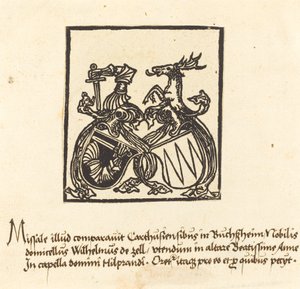 Missale illud comparavit Carthusiensibus in Buchsheim Nobilis
domicellus Wilhelmus de zell. Utendum in altare Beatissime Anne
In capella domini Hilprandi. Oretur itaque pro eo et pro quibus petiit.